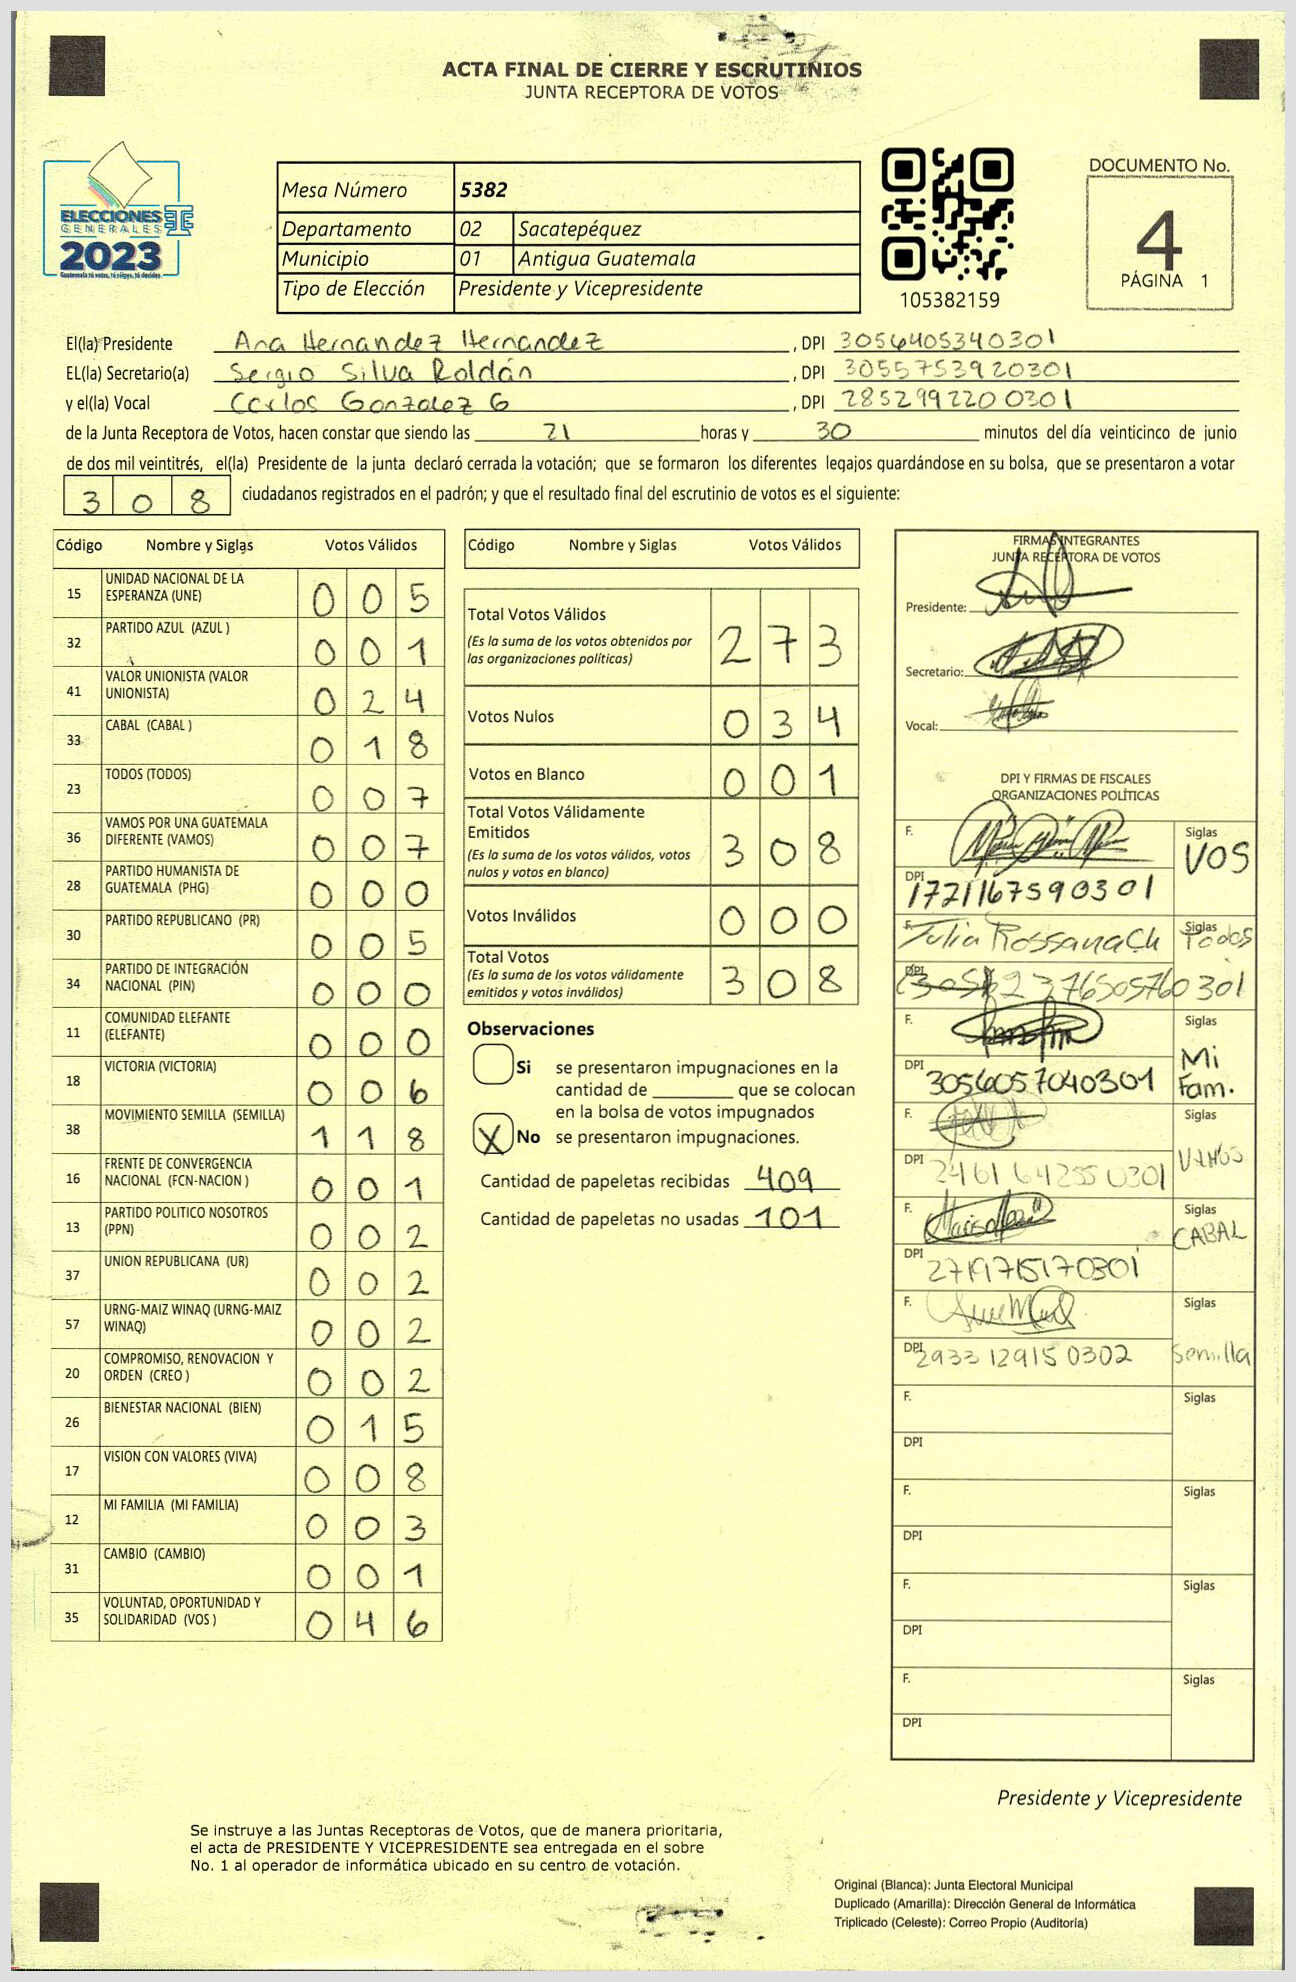 ACTA FINAL DE CIERRE Y ESCRUTINIOS
JUNTA RECEPTORA DE VOTOS
ELECCIONES
GENERALES
2023
Guatemala tú votas, tú eliges, tú decides
Mesa Número 5382
Departamento 02 Sacatepéquez
Municipio 01 Antigua Guatemala
Tipo de Elección Presidente y Vicepresidente
105382159
DOCUMENTO No.
4
PÁGINA 1
El(la) Presidente Ana Hernandez Hernandez , DPI 3056405340301
EL(la) Secretario(a) Sergio Silva Roldán , DPI 3055753920301
y el(la) Vocal Carlos Gonzalez G , DPI 2852992200301
de la Junta Receptora de Votos, hacen constar que siendo las 21 horas y 30 minutos del día veinticinco de junio
de dos mil veintitrés, el(la) Presidente de la junta declaró cerrada la votación; que se formaron los diferentes legajos guardándose en su bolsa, que se presentaron a votar
308 ciudadanos registrados en el padrón; y que el resultado final del escrutinio de votos es el siguiente:
Código Nombre y Siglas Votos Válidos
15 UNIDAD NACIONAL DE LA
ESPERANZA (UNE) 005
32 PARTIDO AZUL (AZUL ) 001
41 VALOR UNIONISTA (VALOR
UNIONISTA) 024
33 CABAL (CABAL ) 018
23 TODOS (TODOS) 007
36 VAMOS POR UNA GUATEMALA
DIFERENTE (VAMOS) 007
28 PARTIDO HUMANISTA DE
GUATEMALA (PHG) 000
30 PARTIDO REPUBLICANO (PR) 005
34 PARTIDO DE INTEGRACIÓN
NACIONAL (PIN) 000
11 COMUNIDAD ELEFANTE
(ELEFANTE) 000
18 VICTORIA (VICTORIA) 006
38 MOVIMIENTO SEMILLA (SEMILLA) 118
16 FRENTE DE CONVERGENCIA
NACIONAL (FCN-NACION ) 001
13 PARTIDO POLITICO NOSOTROS
(PPN) 002
37 UNION REPUBLICANA (UR) 002
57 URNG-MAIZ WINAQ (URNG-MAIZ
WINAQ) 002
20 COMPROMISO, RENOVACION Y
ORDEN (CREO ) 002
26 BIENESTAR NACIONAL (BIEN) 015
17 VISION CON VALORES (VIVA) 008
12 MI FAMILIA (MI FAMILIA) 003
31 CAMBIO (CAMBIO) 001
35 VOLUNTAD, OPORTUNIDAD Y
SOLIDARIDAD (VOS ) 046
Código Nombre y Siglas Votos Válidos
Total Votos Válidos 273
(Es la suma de los votos obtenidos por
las organizaciones políticas)
Votos Nulos 034
Votos en Blanco 001
Total Votos Válidamente
Emitidos 308
(Es la suma de los votos válidos, votos
nulos y votos en blanco)
Votos Inválidos 000
Total Votos 308
(Es la suma de los votos válidamente
emitidos y votos inválidos)
Observaciones
Si se presentaron impugnaciones en la
cantidad de que se colocan
en la bolsa de votos impugnados
X No se presentaron impugnaciones.
Cantidad de papeletas recibidas 409
Cantidad de papeletas no usadas 101
FIRMAS INTEGRANTES
JUNTA RECEPTORA DE VOTOS
Presidente:
Secretario:
Vocal:
DPI Y FIRMAS DE FISCALES
ORGANIZACIONES POLÍTICAS
F. Siglas
VOS
DPI 1771167590301
F. Julia Rossana Ch Siglas Todos
DPI
F. Siglas
Mi
Fam.
DPI 3056057040301
F. Siglas
VAMOS
DPI 2461642550301
F. Siglas
CABAL
DPI 2719715170301
F. Siglas
Semilla
DPI 2933129150302
F. Siglas
DPI
F. Siglas
DPI
F. Siglas
DPI
F. Siglas
DPI
Presidente y Vicepresidente
Se instruye a las Juntas Receptoras de Votos, que de manera prioritaria,
el acta de PRESIDENTE Y VICEPRESIDENTE sea entregada en el sobre
No. 1 al operador de informática ubicado en su centro de votación.
Original (Blanca): Junta Electoral Municipal
Duplicado (Amarilla): Dirección General de Informática
Triplicado (Celeste): Correo Propio (Auditoría)